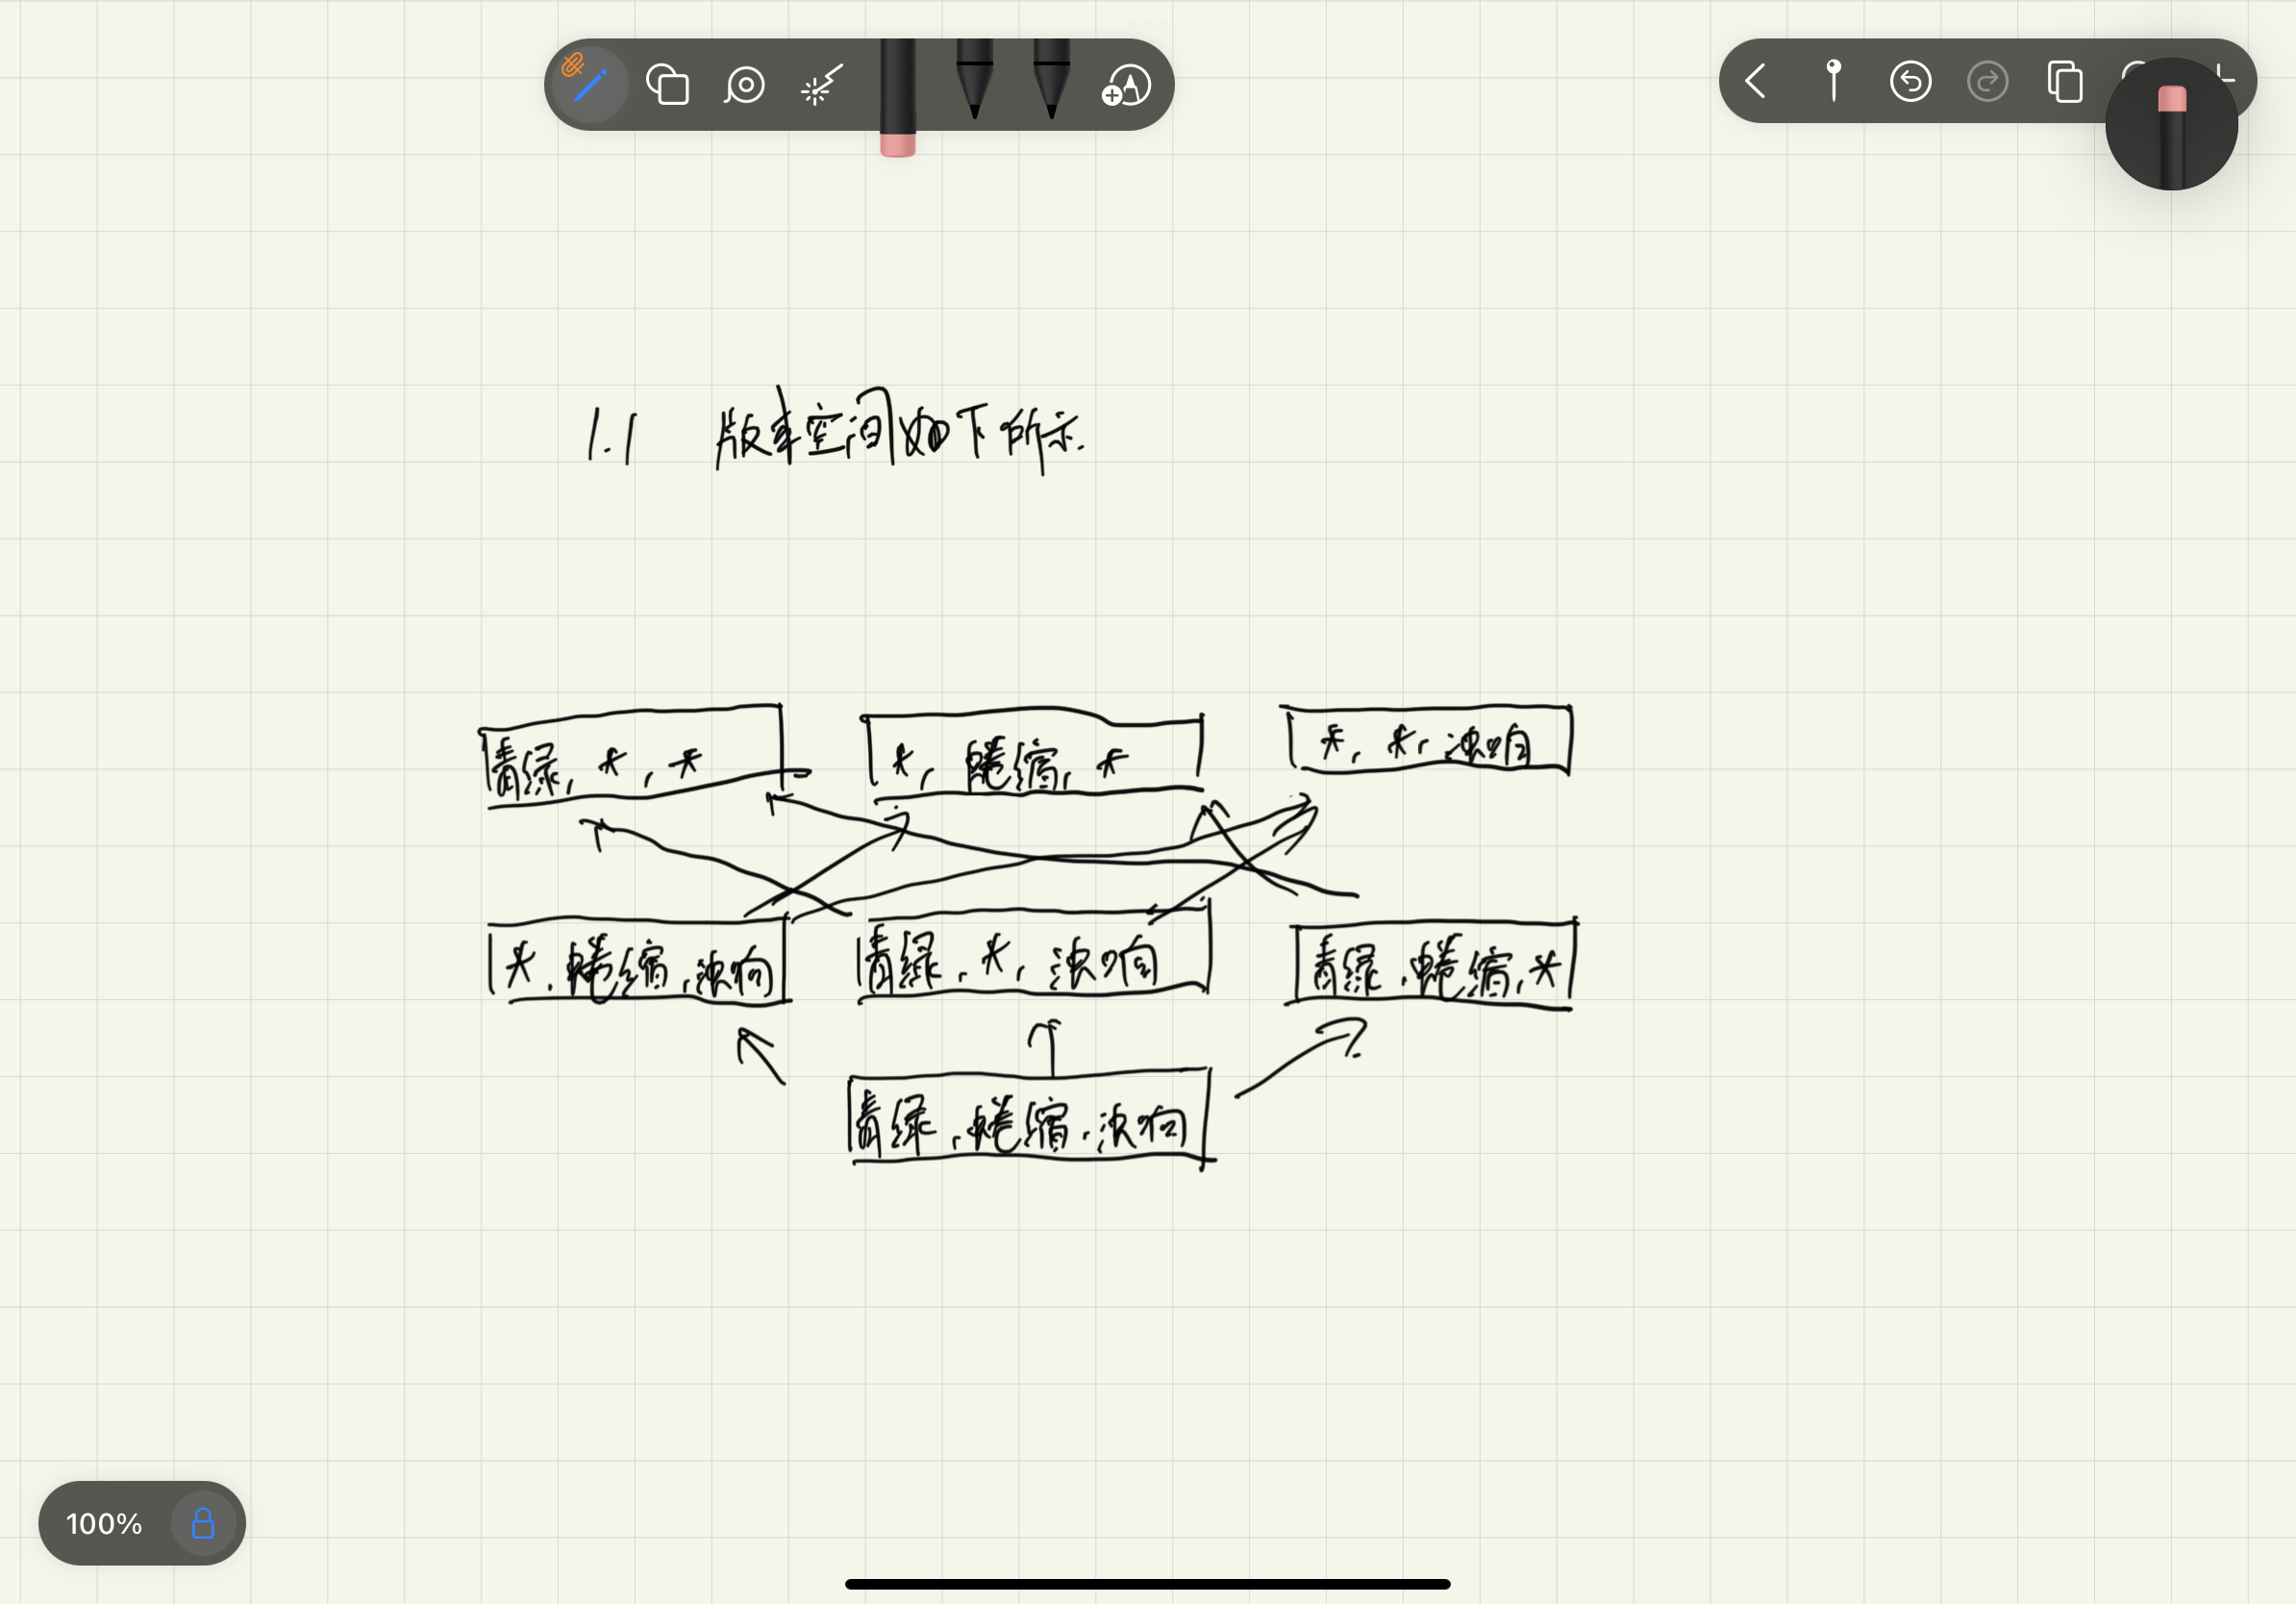 1.1 版本空间如下所示.
青绿, *, *
*, 蜷缩, *
*, *, 浊响
*, 蜷缩, 浊响
青绿, *, 浊响
青绿, 蜷缩, *
青绿, 蜷缩, 浊响
100%